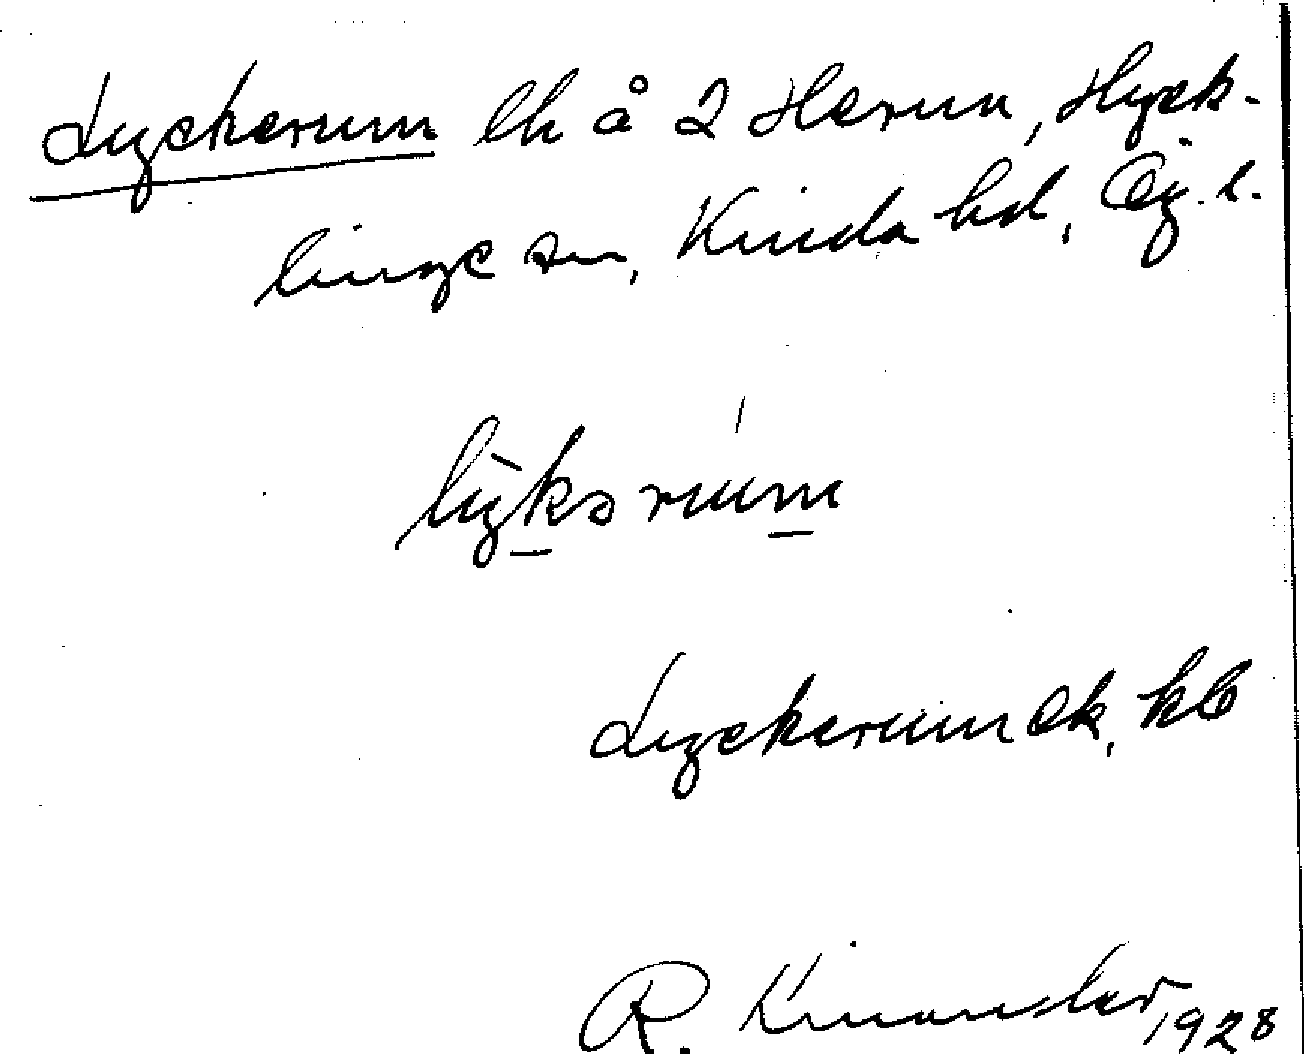 Lyckerum lh å 2 Herum, Hyck-
linge sn, Kinda hd, Ög. l.
lỳkərúm
Lyckerum ek, kb
R. Kinander 1928